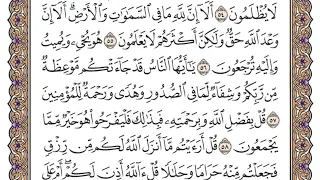 لَا يُظْلَمُونَ ٥٤ أَلَآ إِنَّ لِلَّهِ مَا فِى ٱلسَّمَٰوَٰتِ وَٱلْأَرْضِ ۗ أَلَآ إِنَّ
وَعْدَ ٱللَّهِ حَقٌّ وَلَٰكِنَّ أَكْثَرَهُمْ لَا يَعْلَمُونَ ٥٥ هُوَ يُحْىِۦ وَيُمِيتُ
وَإِلَيْهِ تُرْجَعُونَ ٥٦ يَٰٓأَيُّهَا ٱلنَّاسُ قَدْ جَآءَتْكُم مَّوْعِظَةٌ
مِّن رَّبِّكُمْ وَشِفَآءٌ لِّمَا فِى ٱلصُّدُورِ وَهُدًى وَرَحْمَةٌ لِّلْمُؤْمِنِينَ
٥٧ قُلْ بِفَضْلِ ٱللَّهِ وَبِرَحْمَتِهِۦ فَبِذَٰلِكَ فَلْيَفْرَحُوا۟ هُوَ خَيْرٌ مِّمَّا
يَجْمَعُونَ ٥٨ قُلْ أَرَءَيْتُم مَّآ أَنزَلَ ٱللَّهُ لَكُم مِّن رِّزْقٍ
فَجَعَلْتُم مِّنْهُ حَرَامًا وَحَلَٰلًا قُلْ ءَآللَّهُ أَذِنَ لَكُمْ ۖ أَمْ عَلَى